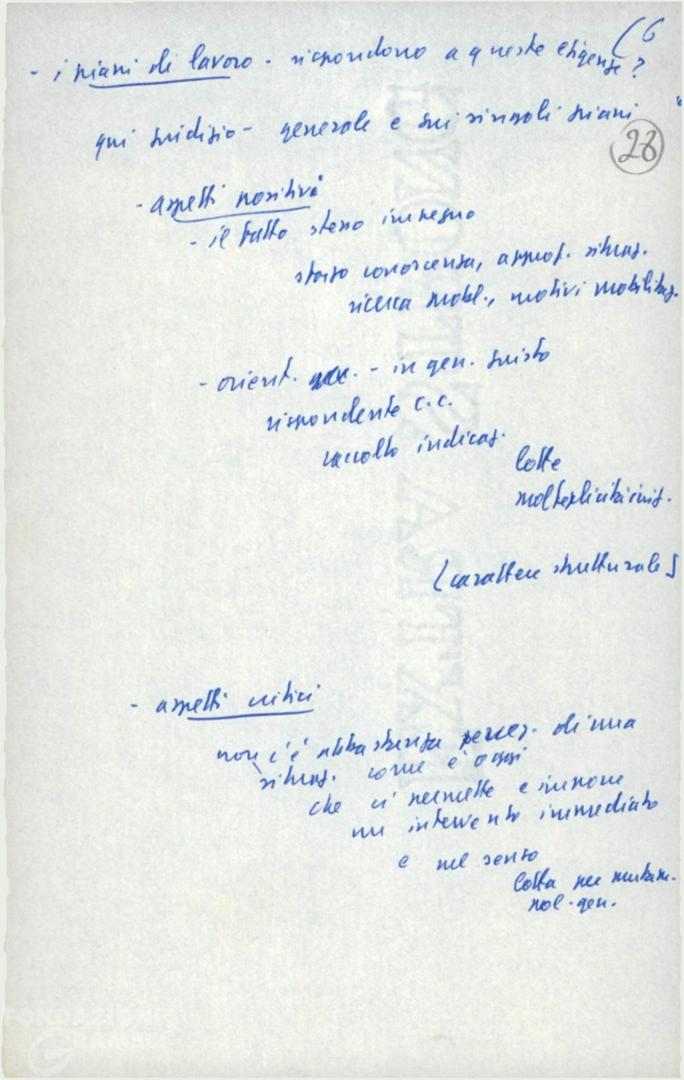 (6
- i piani di lavoro - rispondono a queste esigenze?
qui giudizio - generale e sui singoli piani "
28
- aspetti positivi
- il fatto stesso impegno
sforzo conoscenza, approf. situaz.
ricerca probl., motivi mobilitaz.
- orient. - in gen. giusto
rispondente c.c.
raccolto indicaz.
lotte
molteplicità iniz.
(carattere strutturale)
- aspetti critici
non c'è abbastanza percez. di una
situaz. come è oggi
che ci permette e impone
un intervento immediato
e nel senso
lotta per mutam.
pol. gen.
FONDAZIONE
GRAMSCI